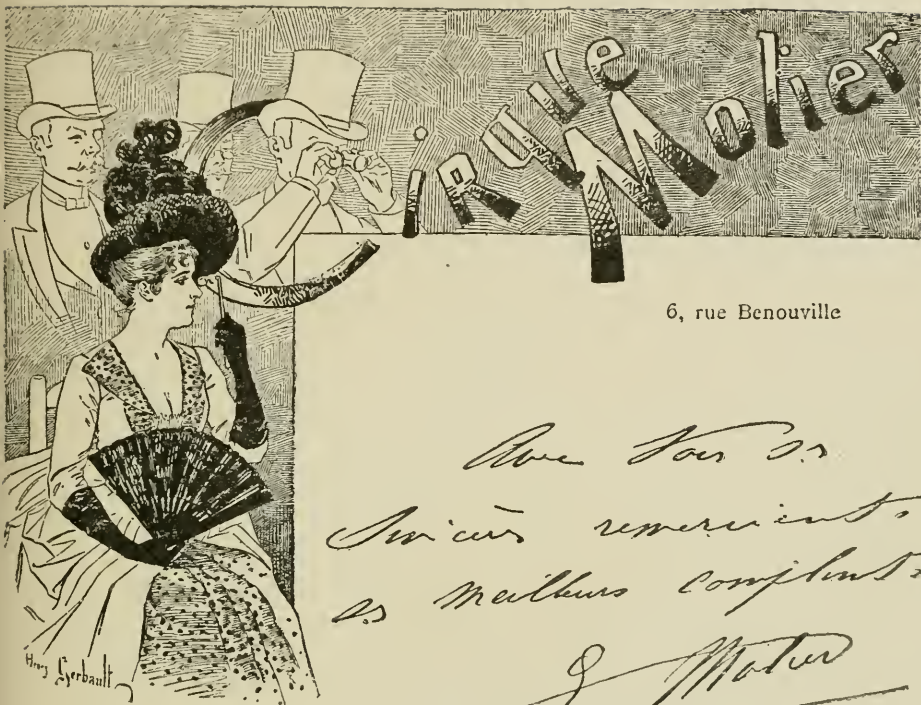 Cirque Molier
6, rue Benouville
Avec tous ses
sincères remerciemts.
ses meilleurs complimts.
E Molier
Henry Gerbault